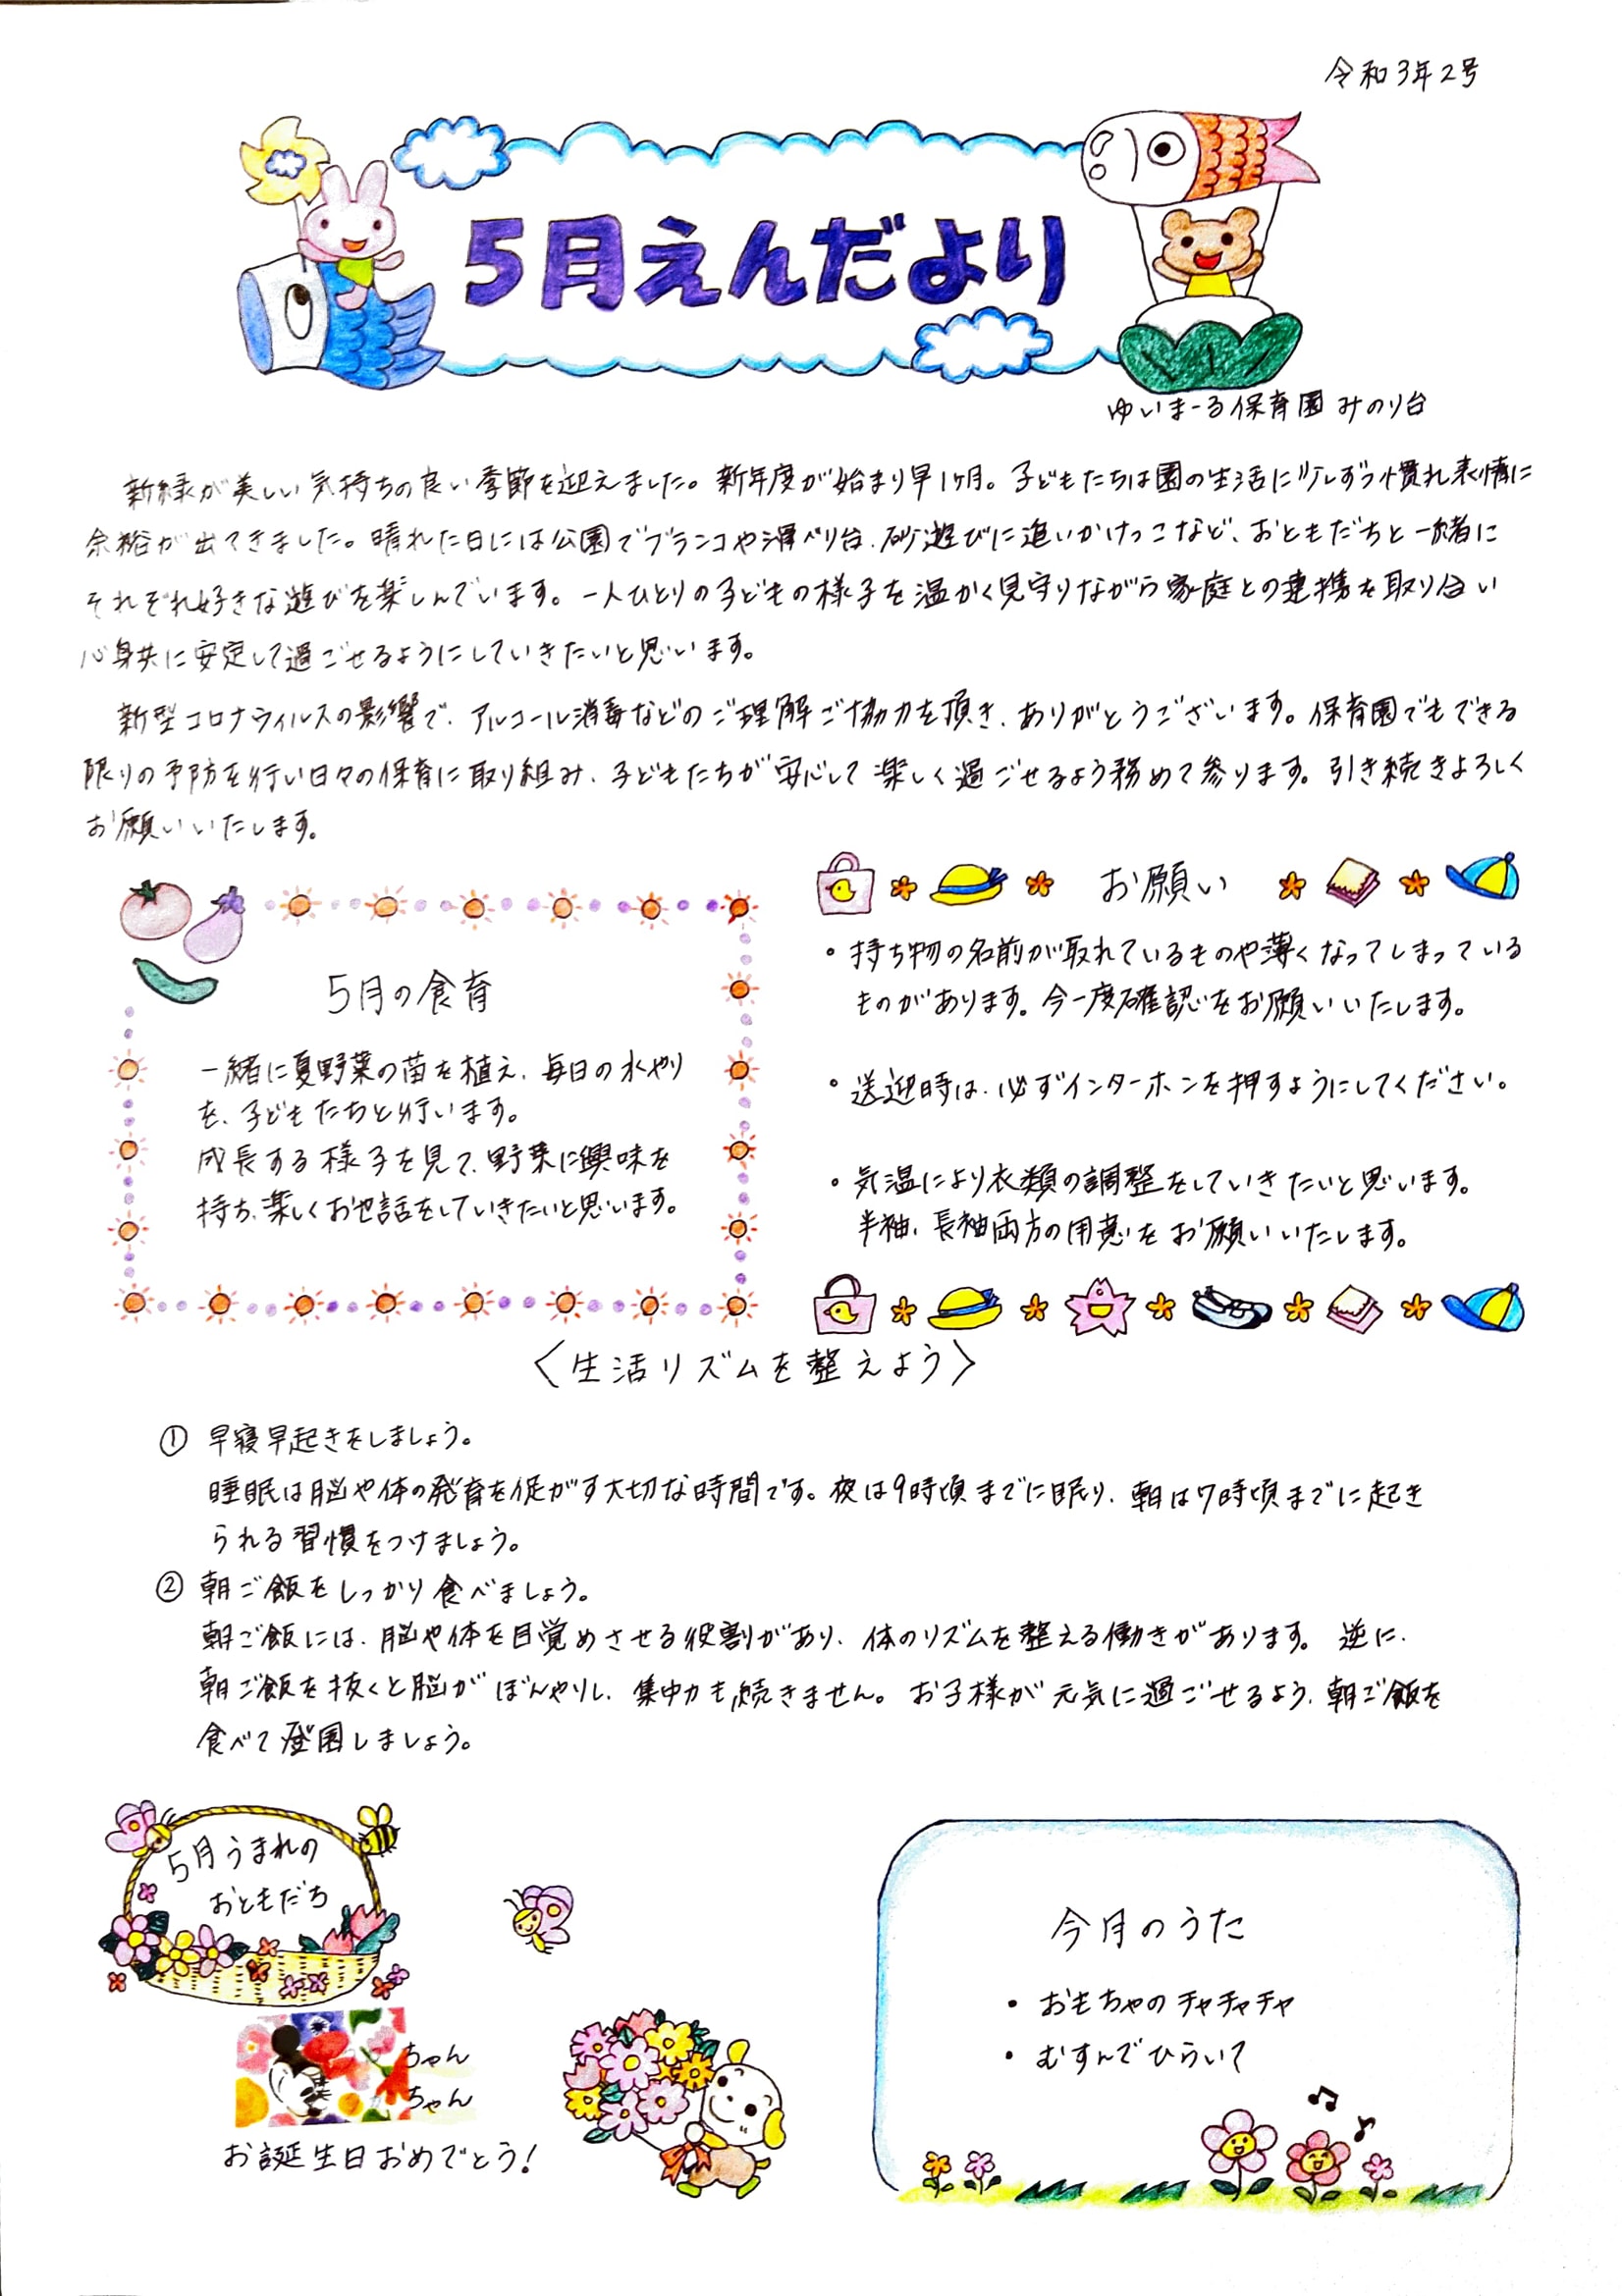 令和3年2号
5月えんだより
ゆいまーる保育園みのり台
新緑が美しい気持ちの良い季節を迎えました。新年度が始まり早1ヶ月。子どもたちは園の生活に少しずつ慣れ表情に
余裕が出てきました。晴れた日には公園でブランコや滑べり台、砂遊びに追いかけっこなど、おともだちと一緒に
それぞれ好きな遊びを楽しんでいます。一人ひとりの子どもの様子を温かく見守りながら家庭との連携を取り合い
心身共に安定して過ごせるようにしていきたいと思います。
新型コロナウィルスの影響で、アルコール消毒などのご理解ご協力を頂き、ありがとうございます。保育園でもできる
限りの予防を行い日々の保育に取り組み、子どもたちが安心して楽しく過ごせるよう務めて参ります。引き続きよろしく
お願いいたします。
5月の食育
一緒に夏野菜の苗を植え、毎日の水やり
を、子どもたちと行います。
成長する様子を見て、野菜に興味を
持ち、楽しくお世話をしていきたいと思います。
お願い
・持ち物の名前が取れているものや薄くなってしまっている
ものがあります。今一度確認をお願いいたします。
・送迎時は、必ずインターホンを押すようにしてください。
・気温により衣類の調整をしていきたいと思います。
半袖、長袖両方の用意をお願いいたします。
〈生活リズムを整えよう〉
① 早寝早起きをしましょう。
睡眠は脳や体の発育を促がす大切な時間です。夜は9時頃までに眠り、朝は7時頃までに起き
られる習慣をつけましょう。
② 朝ご飯をしっかり食べましょう。
朝ご飯には、脳や体を目覚めさせる役割があり、体のリズムを整える働きがあります。逆に、
朝ご飯を抜くと脳がぼんやりし、集中力も続きません。お子様が元気に過ごせるよう、朝ご飯を
食べて登園しましょう。
5月うまれの
おともだち
ちゃん
ちゃん
お誕生日おめでとう!
今月のうた
・おもちゃのチャチャチャ
・むすんでひらいて